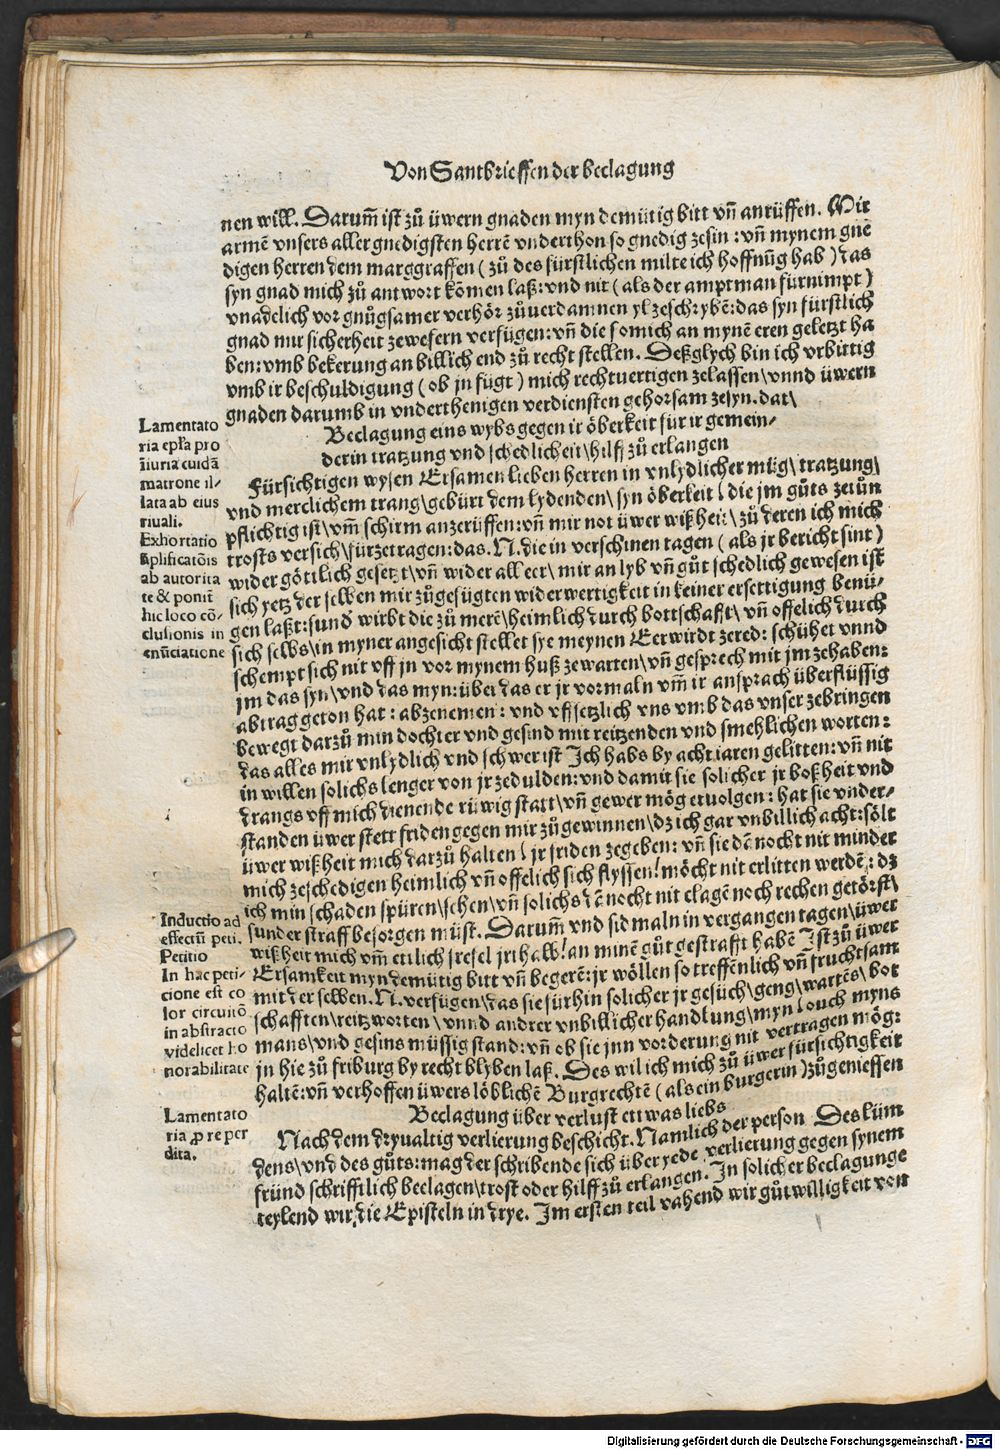 Von Santbrieffen der beclagung
nen will. Darum̄ ist zů üwern gnaden myn demütig bitt vn̄ anrüffen. Mir
armē vnsers aller gnedigsten herrē vnderthon so gnedig zesin: vn̄ mynem gne
digen herren dem marggraffen (zů des fürstlichen milte ich hoffnūg hab) das
syn gnad mich zů antwort kōmen laß: vnd nit (als der amptman fürnimpt)
vnadelich vor gnůgsamer verhör zůuerdamnen yl zeschrybē: das syn fürstlich
gnad mir sicherheit zewesern verfügen: vn̄ die so mich an mynē eren geletzt ha
ben: vmb bekerung an billich end zů recht stellen. Deßglych bin ich vrbittig
vmb ir beschuldigung (ob jn fügt) mich rechtuertigen zelassen\ vnnd üwern
gnaden darumb in vnderthenigen verdiensten gehorsam zesyn. dat\
Beclagung eins wybs gegen ir öberkeit für ir gemein-
derin tratzung vnd schedlicheit\ hilff zů erlangen
Lamentato
ria ep̄la pro
īiuria cuidā
matrone il-
lata ab eius
riuali.
Exhortatio
āplificatōis
ab autorita
te & ponit̄
hic loco cō-
clusionis in
enūciatione
Fürsichtigen wysen Ersamen lieben herren in vnlydlicher müg\ tratzung\
vnd merclichem trang\ gebürt dem lydenden\ syn öberkeit\ die jm gůts zetůn
pflichtig ist\ vm̄ schirm anzerüffen: vn̄ mir not üwer wißheit\ zů deren ich mich
trosts versich\ fürzetragen: das. N. die in verschinen tagen (als jr bericht sint)
wider göttlich gesetzt\ vn̄ wider all eer\ mir an lyb vn̄ gůt schedlich gewesen ist
sich yetz der selben mir zůgefügten widerwertigkeit in keiner ersettigung benü-
gen laßt: sund wirbt die zů merē\ heimlich durch bottschafft\ vn̄ offelich durch
sich selbs\ in myner angesicht stellet sye meynen Eerwirdt zered: schühet vnnd
schempt sich nit vff jn vor mynem huß zewarten\ vn̄ gesprech mit jm zehaben:
jm das syn\ vnd das myn: über das er jr vormaln vm̄ ir ansprach überflüssig
abtrag geton hat: abzenemen: vnd vffsetzlich vns vmb das vnser zebringen
bewegt darzů min dochter vnd gesind mit reitzenden vnd smehlichen worten:
das alles mir vnlydlich vnd schwer ist Ich habs by acht iaren gelitten: vn̄ nit
in willen solichs lenger von jr zedulden: vnd damit sie solicher jr boßheit vnd
drangs vff mich dienende rüwig statt\ vn̄ gewer mög eruolgen: hat sie vnder-
standen üwer stett friden gegen mir zůgewinnen\ dz ich gar vnbillich acht: sölt
üwer wißheit mich darzů halten\ jr friden zegeben: vn̄ sie dānocht nit minder
mich zeschedigen heimlich vn̄ offelich sich flyssen\ möcht nit erlitten werdē: dz
ich min schaden spüren\ sehen\ vn̄ solichs dēnocht nit clagē noch rechen getörst\
sunder straff besorgen müst. Darum̄ vnd sidmaln in vergangen tagen\ üwer
wißheit mich vm̄ etlich sresel jrthalb\ an minē gůt gestrafft habē Ist zů üwer
Ersamkeit myn demütig bitt vn̄ begerē: jr wöllen so treffēnlich vn̄ fruchtsam
mit der selben. N. verfügen\ das sie fürhin solicher jr gesüch\ geng\ wartēs\ bot
schafften\ reitzworten\ vnnd andrer vnbillicher handlung\ myn\ ouch myns
mans\ vnd gesins müssig stand: vn̄ ob sie jnn vorderung nit vertragen mög:
jn hie zů friburg by recht blyben laß. Des wil ich mich zů üwer fürsichtigkeit
haltē: vn̄ verhoffen üwers löblichē Burgrechtē (als ein burgerin) zůgeniessen
Inductio ad
effectū peti.
Petitio
In hac peti-
cione est co
lor circuitō
in abstracto
videlicet ho
norabilitate
Beclagung über verlust ettwas liebs
Lamentato
ria ꝓ re per
dita.
Nach dem dryualtig verlierung beschicht. Namlich der person Des lüm
dens\ vnd des gůts: mag der schribende sich über yede verlierung gegen synem
fründ schrifftlich beclagen\ trost oder hilff zů erlangen. In solicher beclagunge
teylend wir die Episteln in drye. Im ersten teil vahend wir gůtwilligkeit von
Digitalisierung gefördert durch die Deutsche Forschungsgemeinschaft - DFG